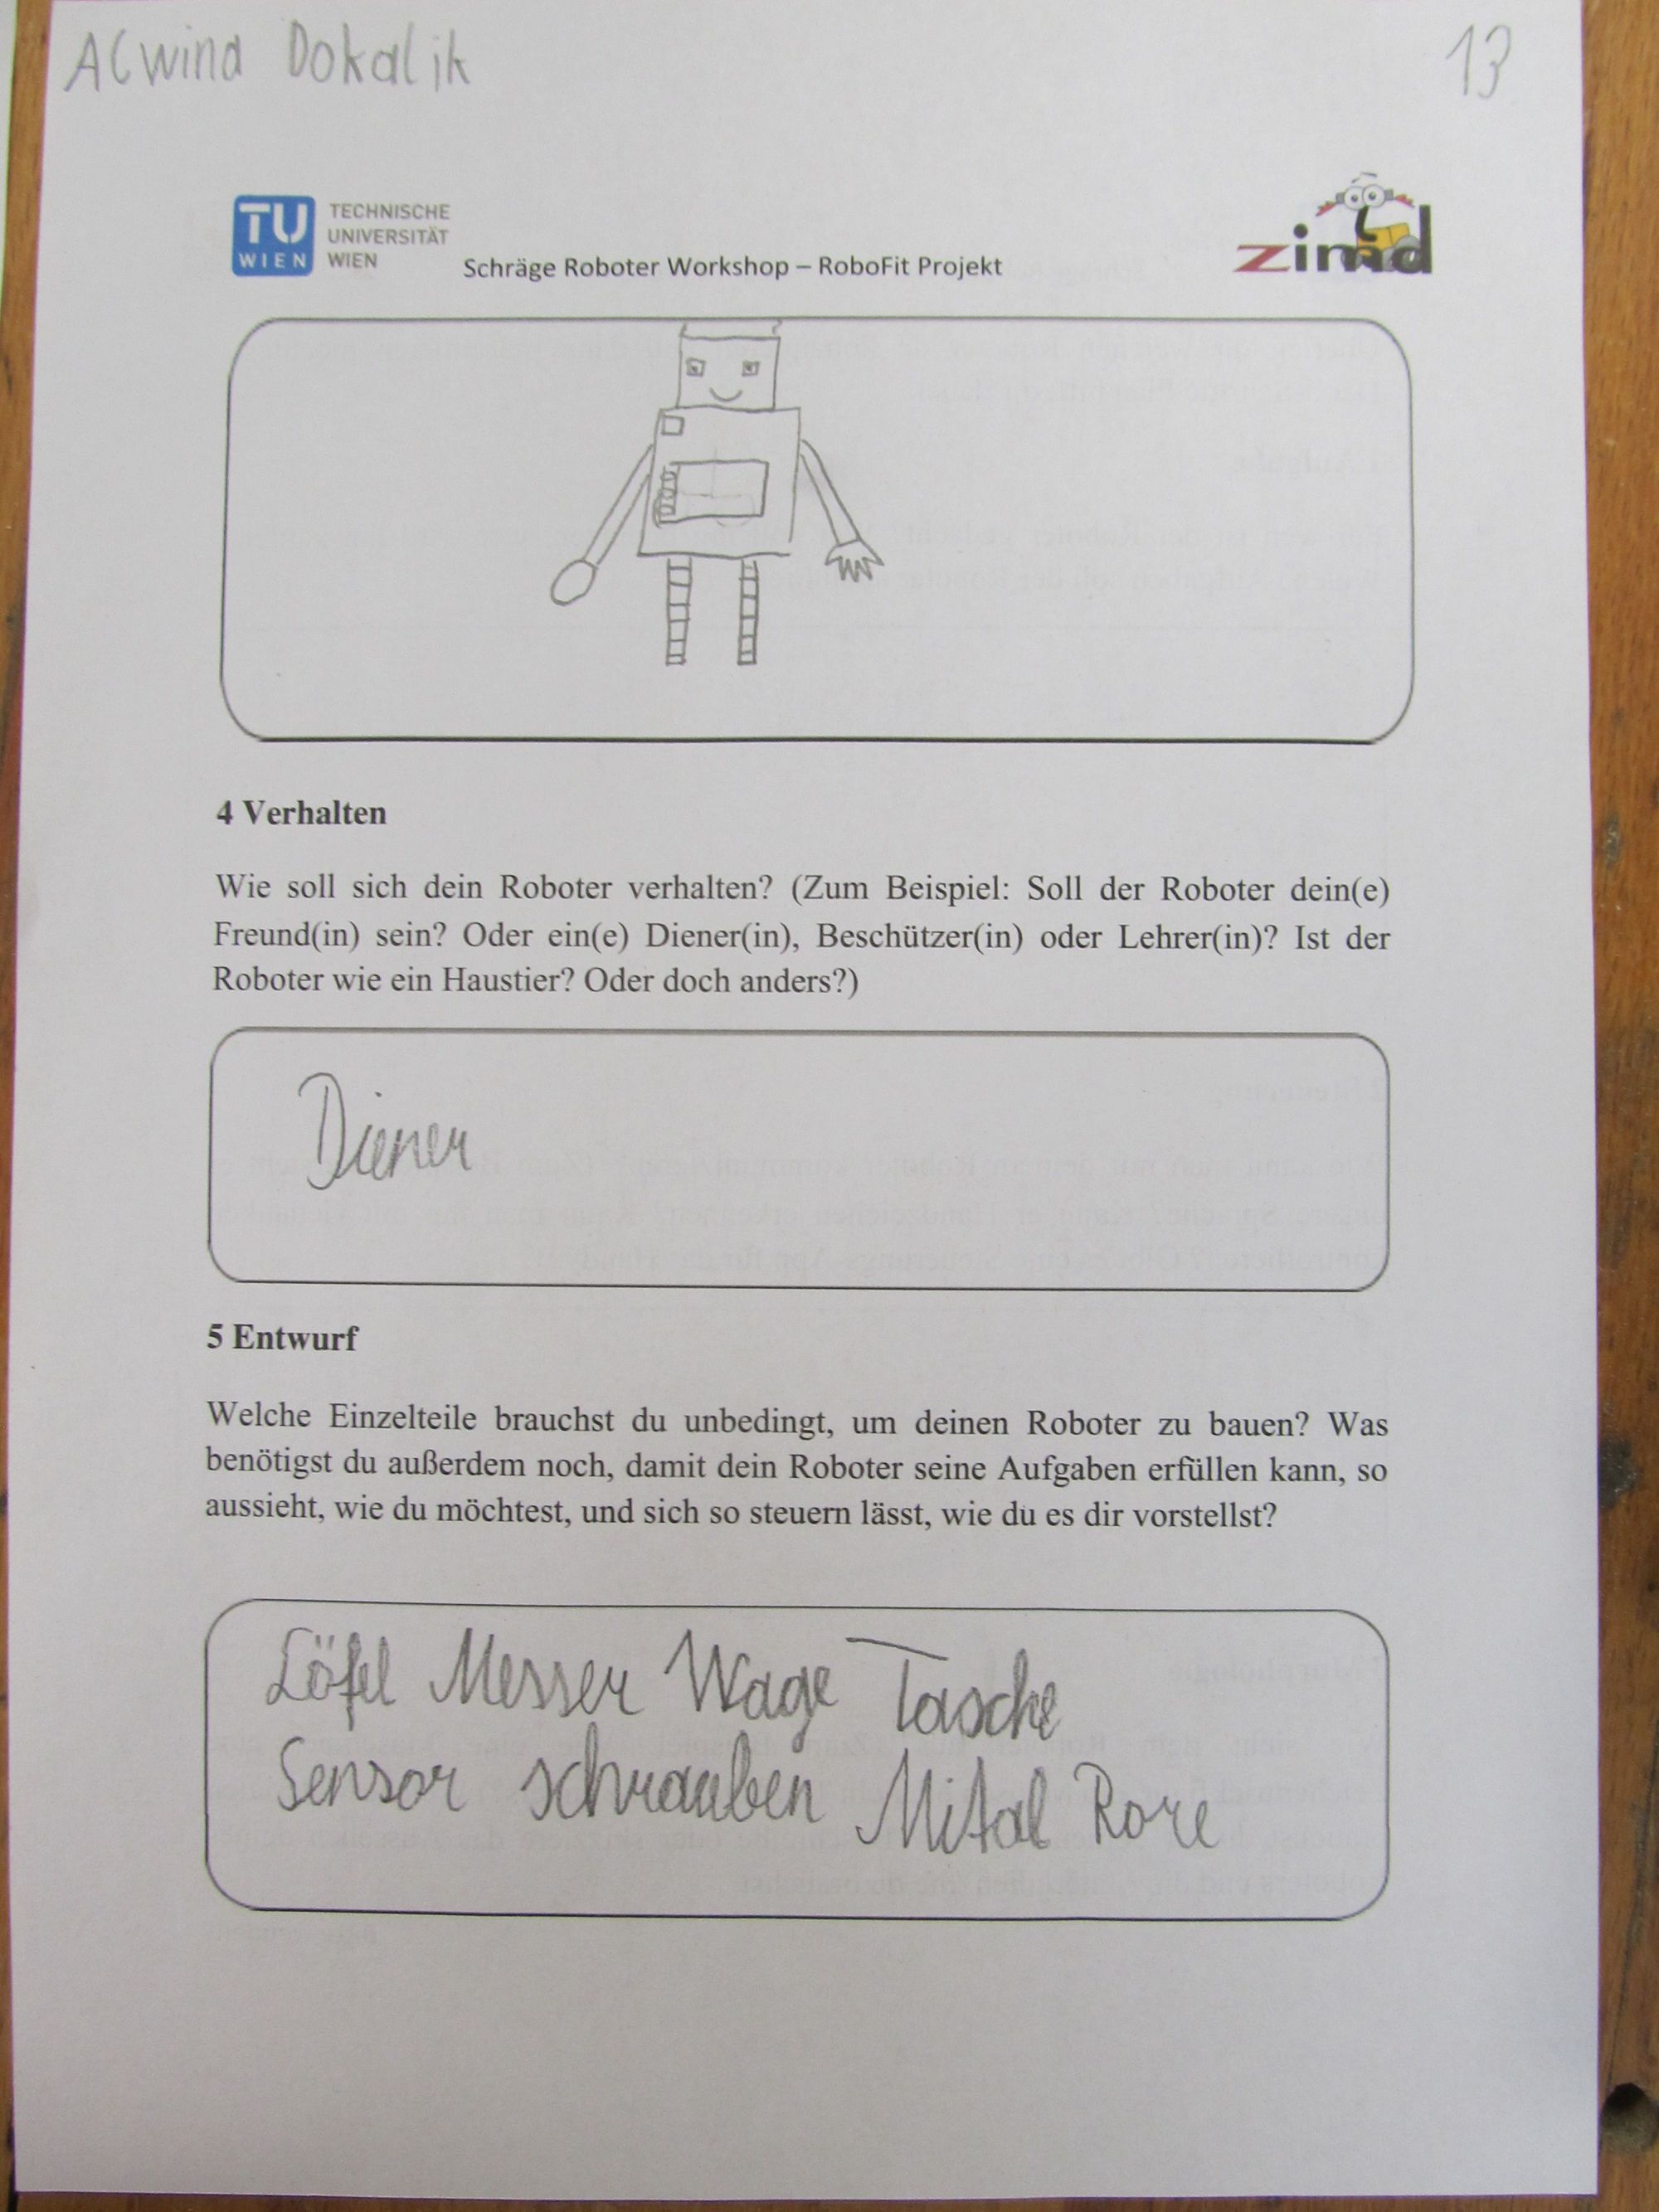 Alwind Dokalik 13
TU WIEN TECHNISCHE UNIVERSITÄT WIEN
Schräge Roboter Workshop – RoboFit Projekt
zimd
4 Verhalten
Wie soll sich dein Roboter verhalten? (Zum Beispiel: Soll der Roboter dein(e)
Freund(in) sein? Oder ein(e) Diener(in), Beschützer(in) oder Lehrer(in)? Ist der
Roboter wie ein Haustier? Oder doch anders?)
Diener
5 Entwurf
Welche Einzelteile brauchst du unbedingt, um deinen Roboter zu bauen? Was
benötigst du außerdem noch, damit dein Roboter seine Aufgaben erfüllen kann, so
aussieht, wie du möchtest, und sich so steuern lässt, wie du es dir vorstellst?
Löfel Messer Wage Tasche
Sensor schrauben Mital Rore